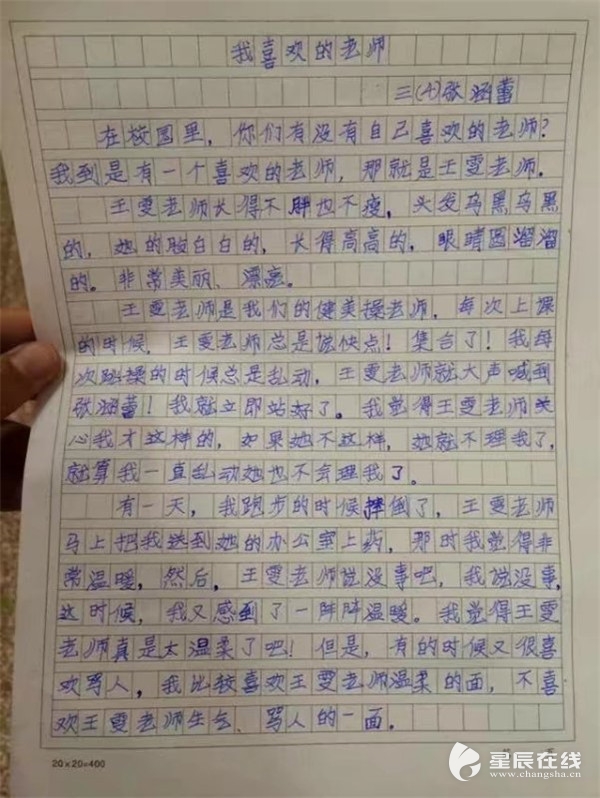 我喜欢的老师
三(4)张涵蕾
在校园里，你们有没有自己喜欢的老师？
我到是有一个喜欢的老师，那就是王雯老师。
王雯老师长得不胖也不瘦，头发乌黑乌黑
的，她的脸白白的，长得高高的，眼睛圆溜溜
的。非常美丽、漂亮。
王雯老师是我们的健美操老师，每次上操
的时候，王雯老师总是说快点！集合了！我每
次跳操的时候总是乱动，王雯老师就大声喊到
张涵蕾！我就立即站好了。我觉得王雯老师关
心我才这样的，如果她不这样，她就不理我了，
就算我一直乱动她也不会理我了。
有一天，我跑步的时候摔倒了，王雯老师
马上把我送到她的办公室上药，那时我觉得非
常温暖，然后，王雯老师说没事吧，我说没事，
这时候，我又感到了一阵阵温暖。我觉得王雯
老师真是太温柔了吧！但是，有的时候又很喜
欢骂人，我比较喜欢王雯老师温柔的面，不喜
欢王雯老师生气、骂人的一面。
20×20=400
星辰在线
www.changsha.cn